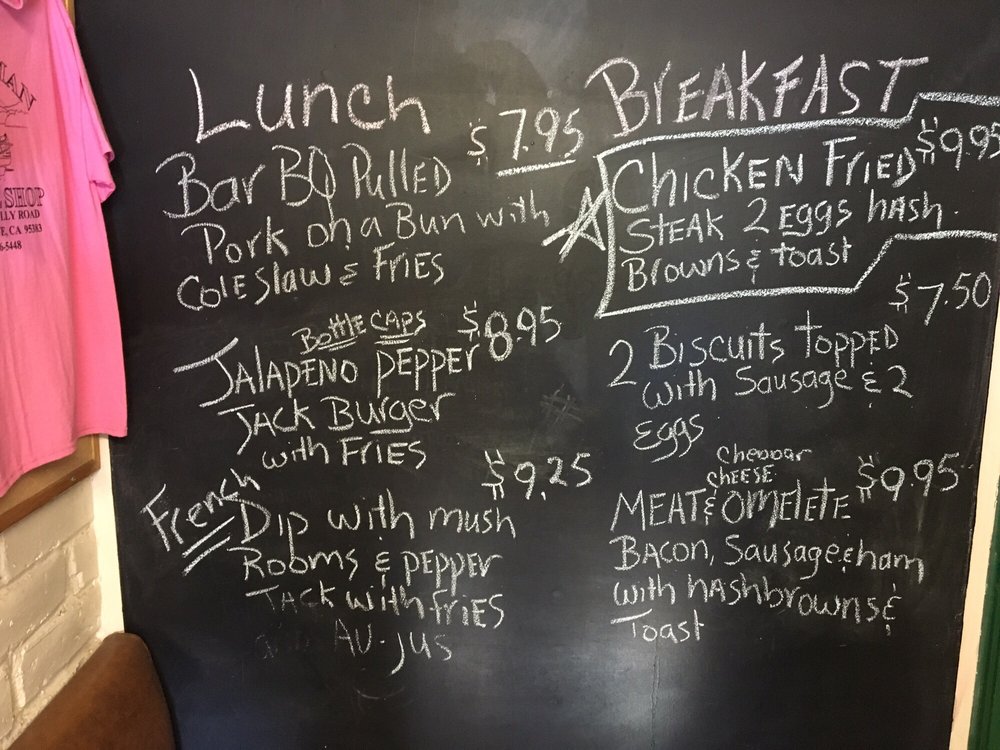 SHOP
LLY ROAD
E, CA 95383
6-5448
Lunch
$7.95
Bar BQ Pulled
Pork on a Bun with
Coleslaw & Fries
Bottle Caps $8.95
JALAPENO PEPPER
JACK Burger
with FRIES
$9.25
French Dip with mush
Rooms & pepper
JACK with fries
AU-jus
BREAKFAST
$9.95
CHICKEN FRIED
STEAK 2 EGGS hASh
Browns & toast
$7.50
2 Biscuits topped
with Sausage & 2
Eggs
Cheddar
CHEESE $9.95
MEAT & OMELETE
BACON, Sausage & ham
with hashbrowns &
Toast